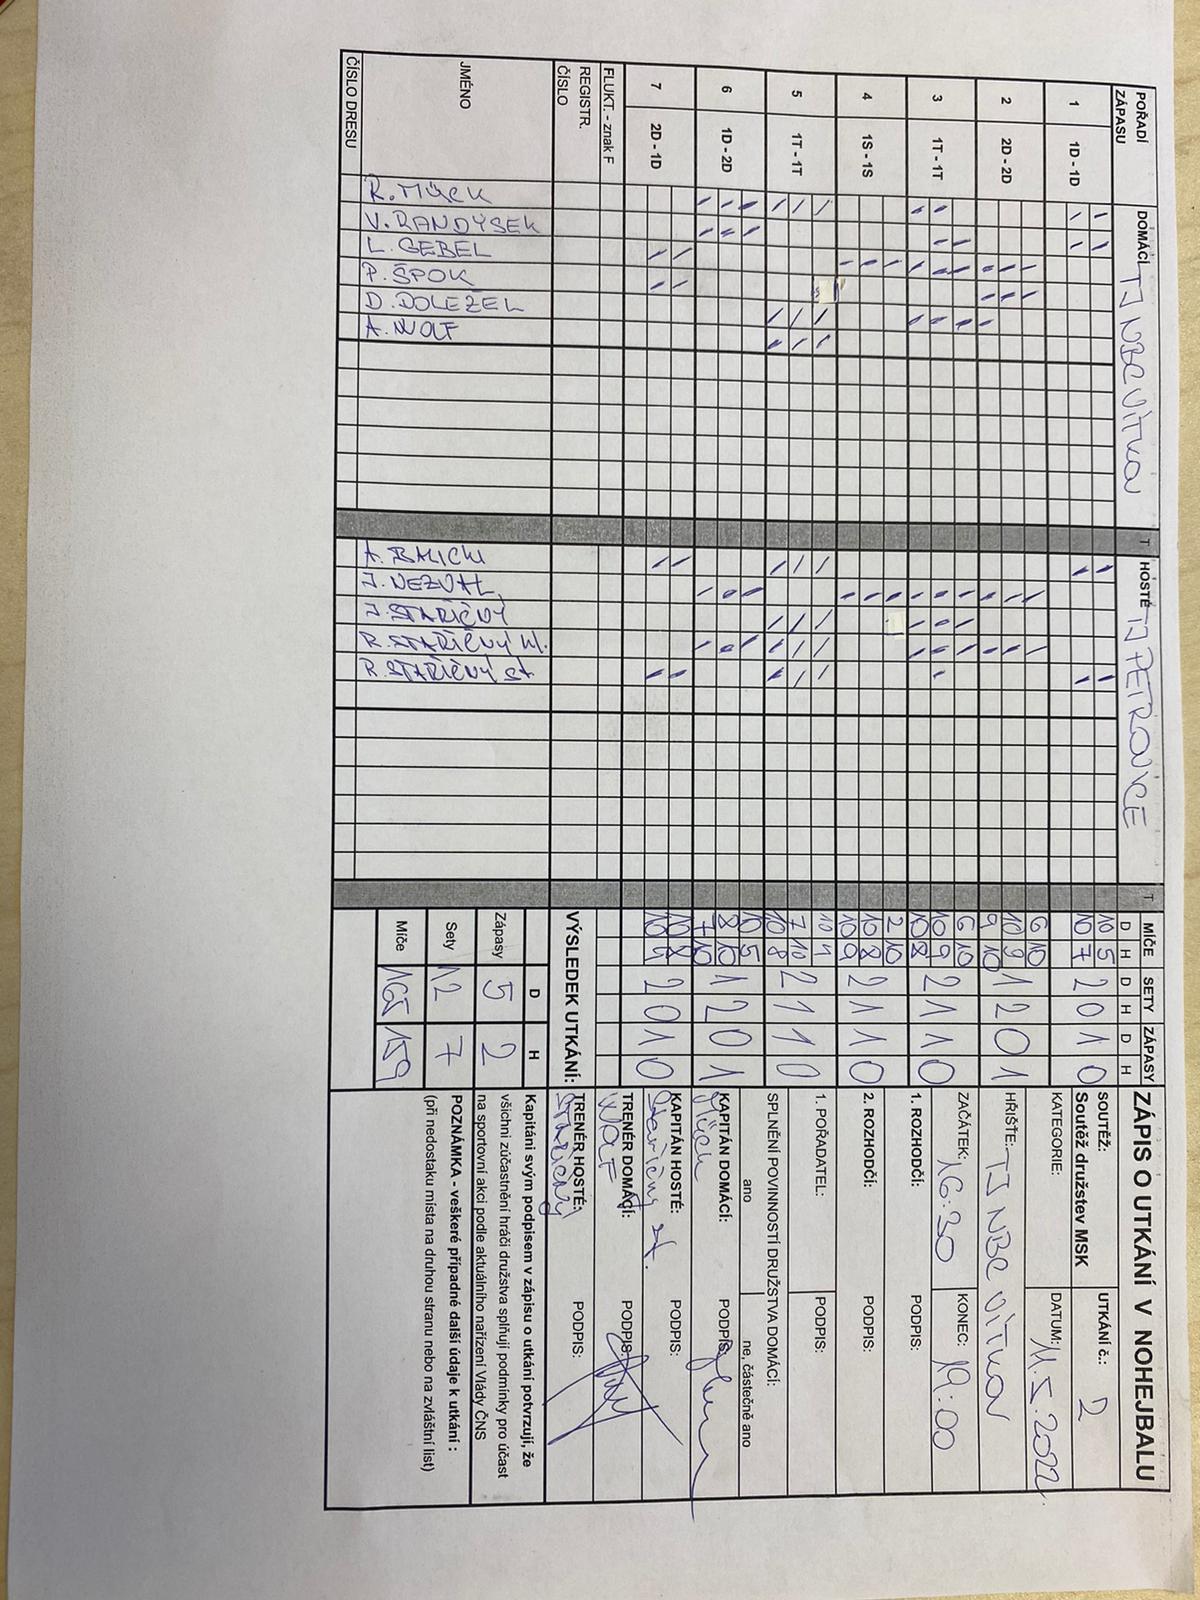 ZÁPIS O UTKÁNÍ V NOHEJBALU
SOUTĚŽ:
Soutěž družstev MSK
UTKÁNÍ č.: 2
KATEGORIE:
DATUM: 11.5.2022
HŘIŠTĚ: TJ NBC VÍTKOV
ZAČÁTEK: 16:30
KONEC: 19:00
1. ROZHODČÍ:
PODPIS:
2. ROZHODČÍ:
PODPIS:
1. POŘADATEL:
PODPIS:
SPLNĚNÍ POVINNOSTÍ DRUŽSTVA DOMÁCÍ:
ano
ne, částečně ano
KAPITÁN DOMÁCÍ: Mück
PODPIS:
KAPITÁN HOSTÉ: Staříčný st.
PODPIS:
TRENÉR DOMÁCÍ: WOLF
PODPIS:
TRENÉR HOSTÉ: STAŘÍČNÝ
PODPIS:
Kapitáni svým podpisem v zápisu o utkání potvrzují, že
všichni zúčastnění hráči družstva splňují podmínky pro účast
na sportovní akci podle aktuálního nařízení Vlády ČNS
POZNÁMKA - veškeré případné další údaje k utkání :
(při nedostaku místa na druhou stranu nebo na zvláštní list)
POŘADÍ
ZÁPASU
DOMÁCÍ TJ NBC VÍTKOV
T
HOSTÉ TJ PETROVICE
T
MÍČE SETY ZÁPASY
D H D H D H
1 1D - 1D
10 5
10 7
2 0 1 0
2 2D - 2D
6 10
10 9
9 10
1 2 0 1
3 1T - 1T
6 10
10 9
10 8
2 1 1 0
4 1S - 1S
2 10
10 8
10 9
2 1 1 0
5 1T - 1T
7 10
10 8
2 1 1 0
6 1D - 2D
10 5
8 10
7 10
1 2 0 1
7 2D - 1D
10 8
2 0 1 0
FLUKT. - znak F
REGISTR.
ČÍSLO
JMÉNO
ČÍSLO DRESU
R. MÜCK
V. RANDÝSEK
L. GEBEL
P. ŠPOK
D. DOLEŽEL
A. WOLF
A. BALICKI
J. NEZVAL
J. STAŘÍČNÝ
R. STAŘÍČNÝ ml.
R. STAŘÍČNÝ st.
VÝSLEDEK UTKÁNÍ:
D H
Zápasy 5 2
Sety 12 7
Míče 165 159